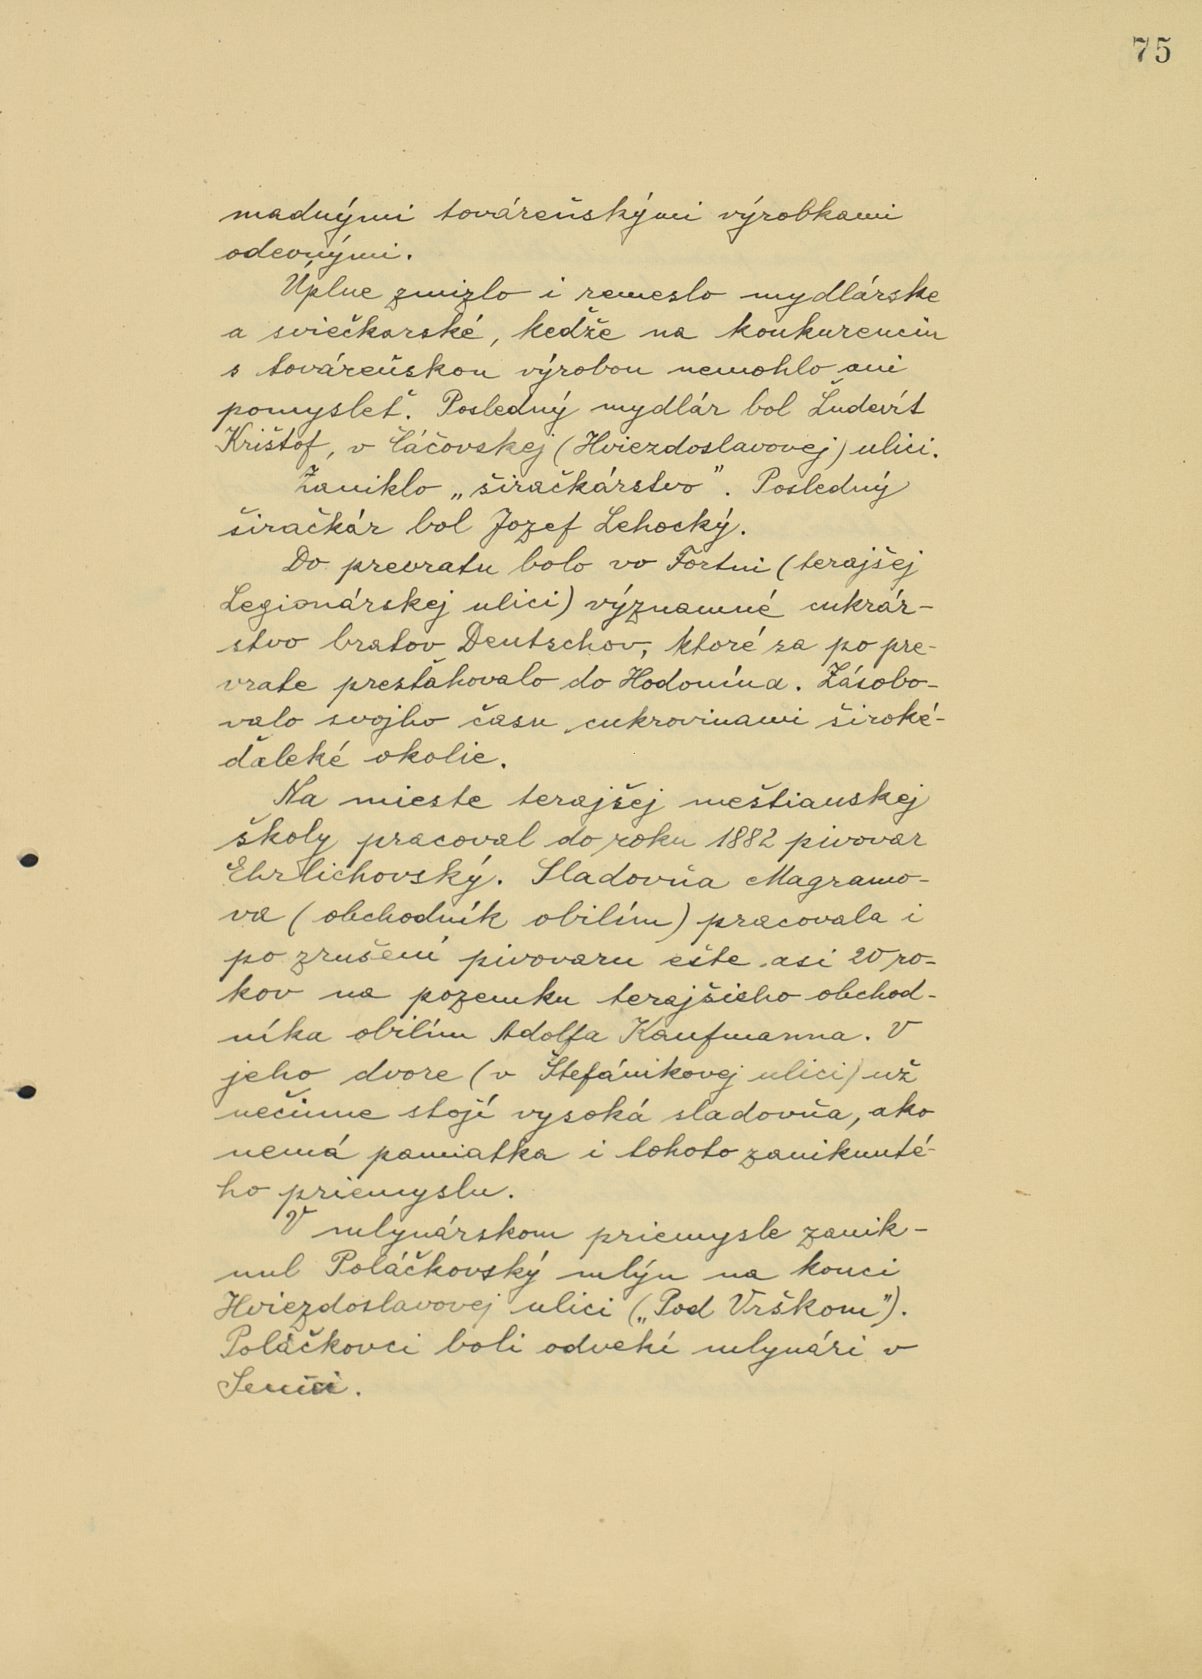 75
madnými továreňskými výrobkami
odevnými.
Úplne zmizlo i remeslo mydlárske
a sviečkarské, kedže na konkurenciu
s továreňskou výrobou nemohlo ani
pomysleť. Posledný mydlár bol Ľudevít
Krištof, v Čáčovskej (Hviezdoslavovej) ulici.
Zaniklo „širačkárstvo”. Posledný
širačkár bol Jozef Lehocký.
Do prevratu bolo vo Fortni (terajšej
Legionárskej ulici) významné cukrár-
stvo bratov Deutschov, ktoré sa po pre-
vrate presťahovalo do Hodonína. Zásobo-
valo svojho času cukrovinami široké-
ďaleké okolie.
Na mieste terajšej meštianskej
školy pracoval do roku 1882 pivovar
Ehrlichovský. Sladovňa Magramo-
va (obchodník obilím) pracovala i
po zrušení pivovaru ešte asi 20 ro-
kov na pozemku terajšieho obchod-
níka obilím Adolfa Kaufmanna. V
jeho dvore (v Štefánikovej ulici) už
nečinne stojí vysoká sladovňa, ako
nemá pamiatka i tohoto zaniknuté-
ho priemyslu.
V mlynárskom priemysle zanik-
nul Poláčkovský mlýn na konci
Hviezdoslavovej ulici („Pod Vrškom”).
Poláčkovci boli odvekí mlynári v
Senici.